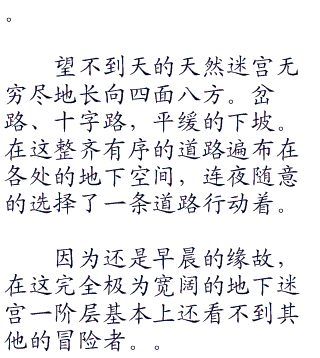 。
望不到天的天然迷宫无
穷尽地长向四面八方。岔
路、十字路，平缓的下坡。
在这整齐有序的道路遍布在
各处的地下空间，连夜随意
的选择了一条道路行动着。
因为还是早晨的缘故，
在这完全极为宽阔的地下迷
宫一阶层基本上还看不到其
他的冒险者。。